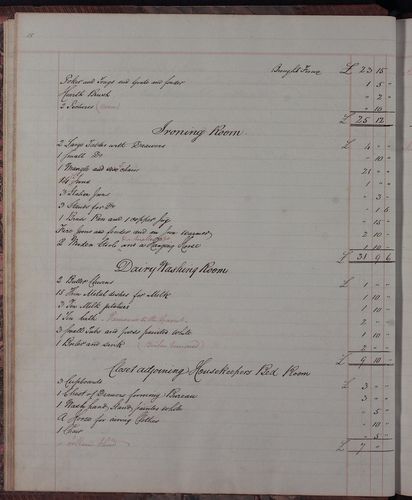 Brought From £ 23 15
Poker and Tongs and Grate and fender 1 5 "
Hearth Brush " 2 "
3 Pictures " 10 "
£ 25 12
Ironing Room
2 Large Tables with Drawers £ 4 " "
1 Small Do " 10 "
1 Mangle and chain 21 " "
14 Irons 1 " "
3 Italian Irons " 3 "
3 Stands for Do " 1 6
1 Brass Pan and 1 copper Jug " 15 "
Fire Irons and fender and an Iron warmer 2 10 "
2 Wooden Stools and a Hanging Horse 1 10 "
£ 31 9 6
Dairy Washing Room
2 Butter Churns £ 1 " "
15 Tin Metal dishes for Milk 1 10 "
3 Tin Milk pitchers 1 10 "
1 Tin bath 2 " "
3 Small Tubs and painted white 1 10 "
1 Boiler and sink 2 " "
£ 9 10 "
Closet adjoining Housekeepers Bed Room
3 Cupboards £ 3 " "
1 Chest of Drawers forming Bureau 3 " "
1 Wash hand Stand painted white " 5 "
A Horse for airing Clothes " 10 "
1 Chair " 5 "
£ 7 " "